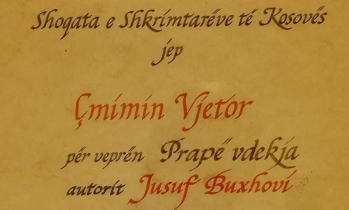 Shoqata e Shkrimtarëve të Kosovës
jep
Çmimin Vjetor
për veprën Prapë vdekja
autorit Jusuf Buxhovi